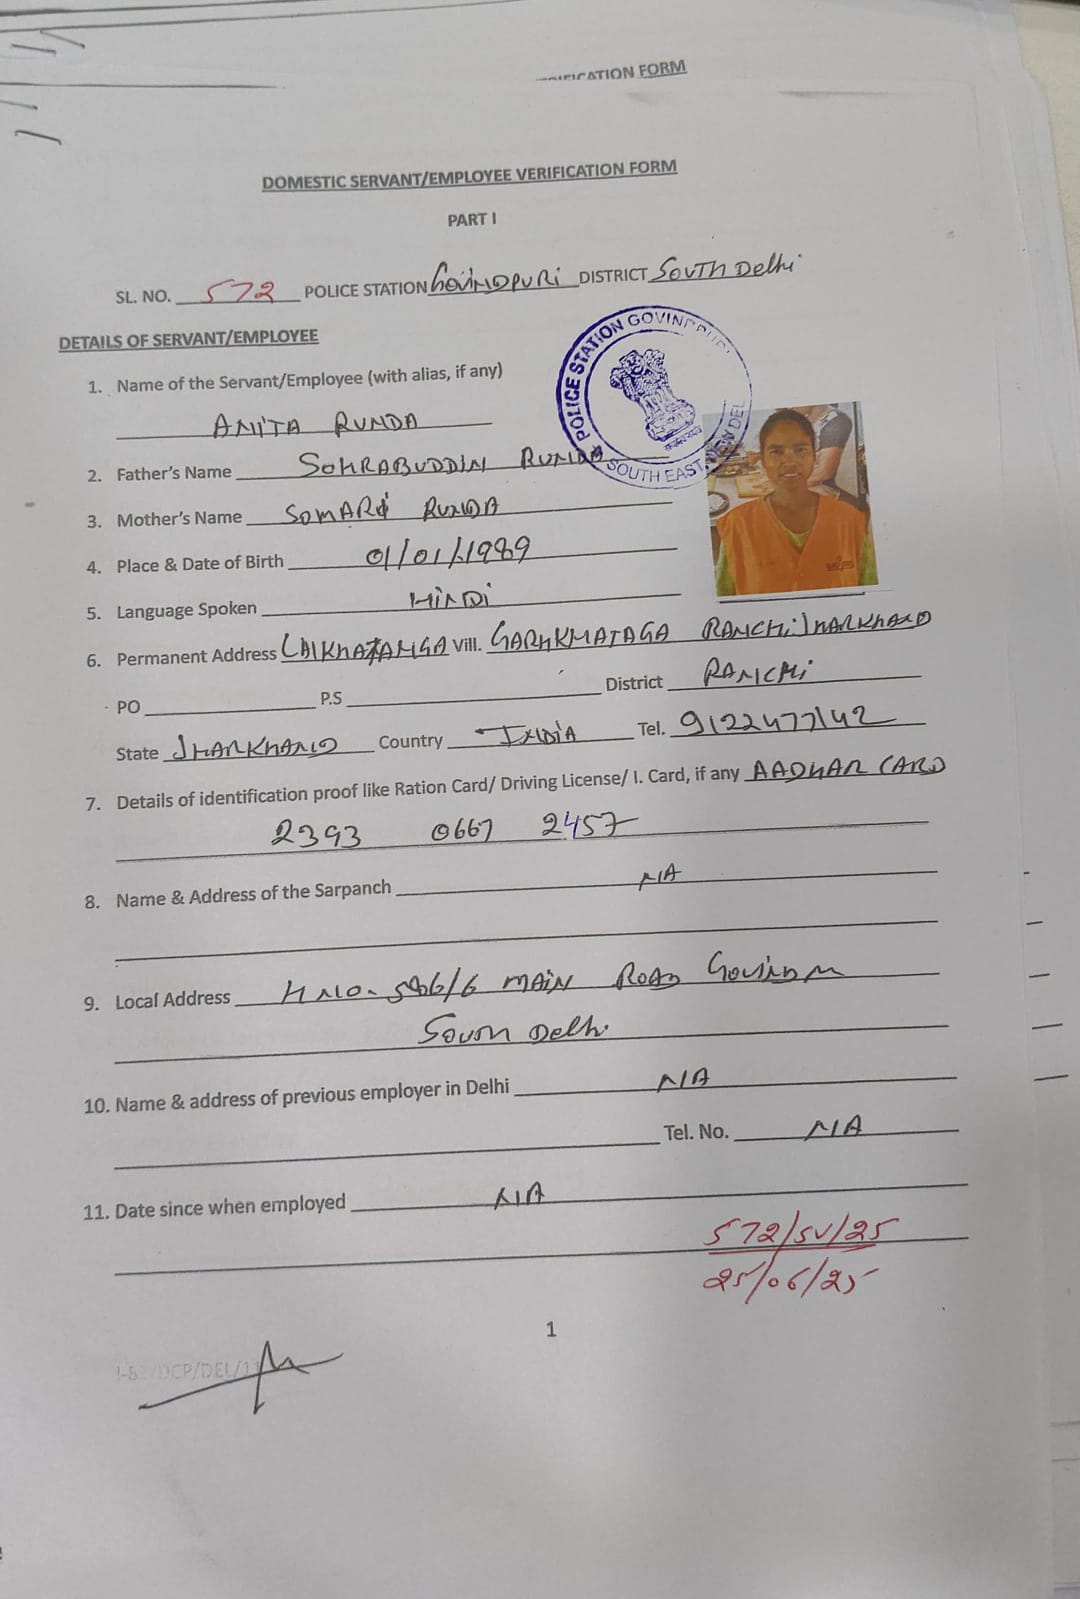 VERIFICATION FORM
DOMESTIC SERVANT/EMPLOYEE VERIFICATION FORM
PART I
SL. NO. 572 POLICE STATION GOVINDPURI DISTRICT SOUTH Delhi
POLICE STATION GOVINDPURI
SOUTH EAST, NEW DEL
DETAILS OF SERVANT/EMPLOYEE
1. Name of the Servant/Employee (with alias, if any)
ANITA RUNDA
2. Father's Name SOHRABUDDIN RUNDA
3. Mother's Name SOMARI RUNDA
4. Place & Date of Birth 01/01/1989
5. Language Spoken HINDI
6. Permanent Address LALKHATANGA Vill. GARHKHATAGA RANCHI JHARKHAND
PO P.S District RANCHI
State JHARKHAND Country INDIA Tel. 9122477142
7. Details of identification proof like Ration Card/ Driving License/ I. Card, if any AADHAR CARD
2393 0667 2457
8. Name & Address of the Sarpanch N/A
9. Local Address H NO. /6 MAIN ROAD
South Delhi
10. Name & address of previous employer in Delhi N/A
Tel. No. N/A
11. Date since when employed N/A
572/SV/25
25/06/25
1
/DCP/DEL/